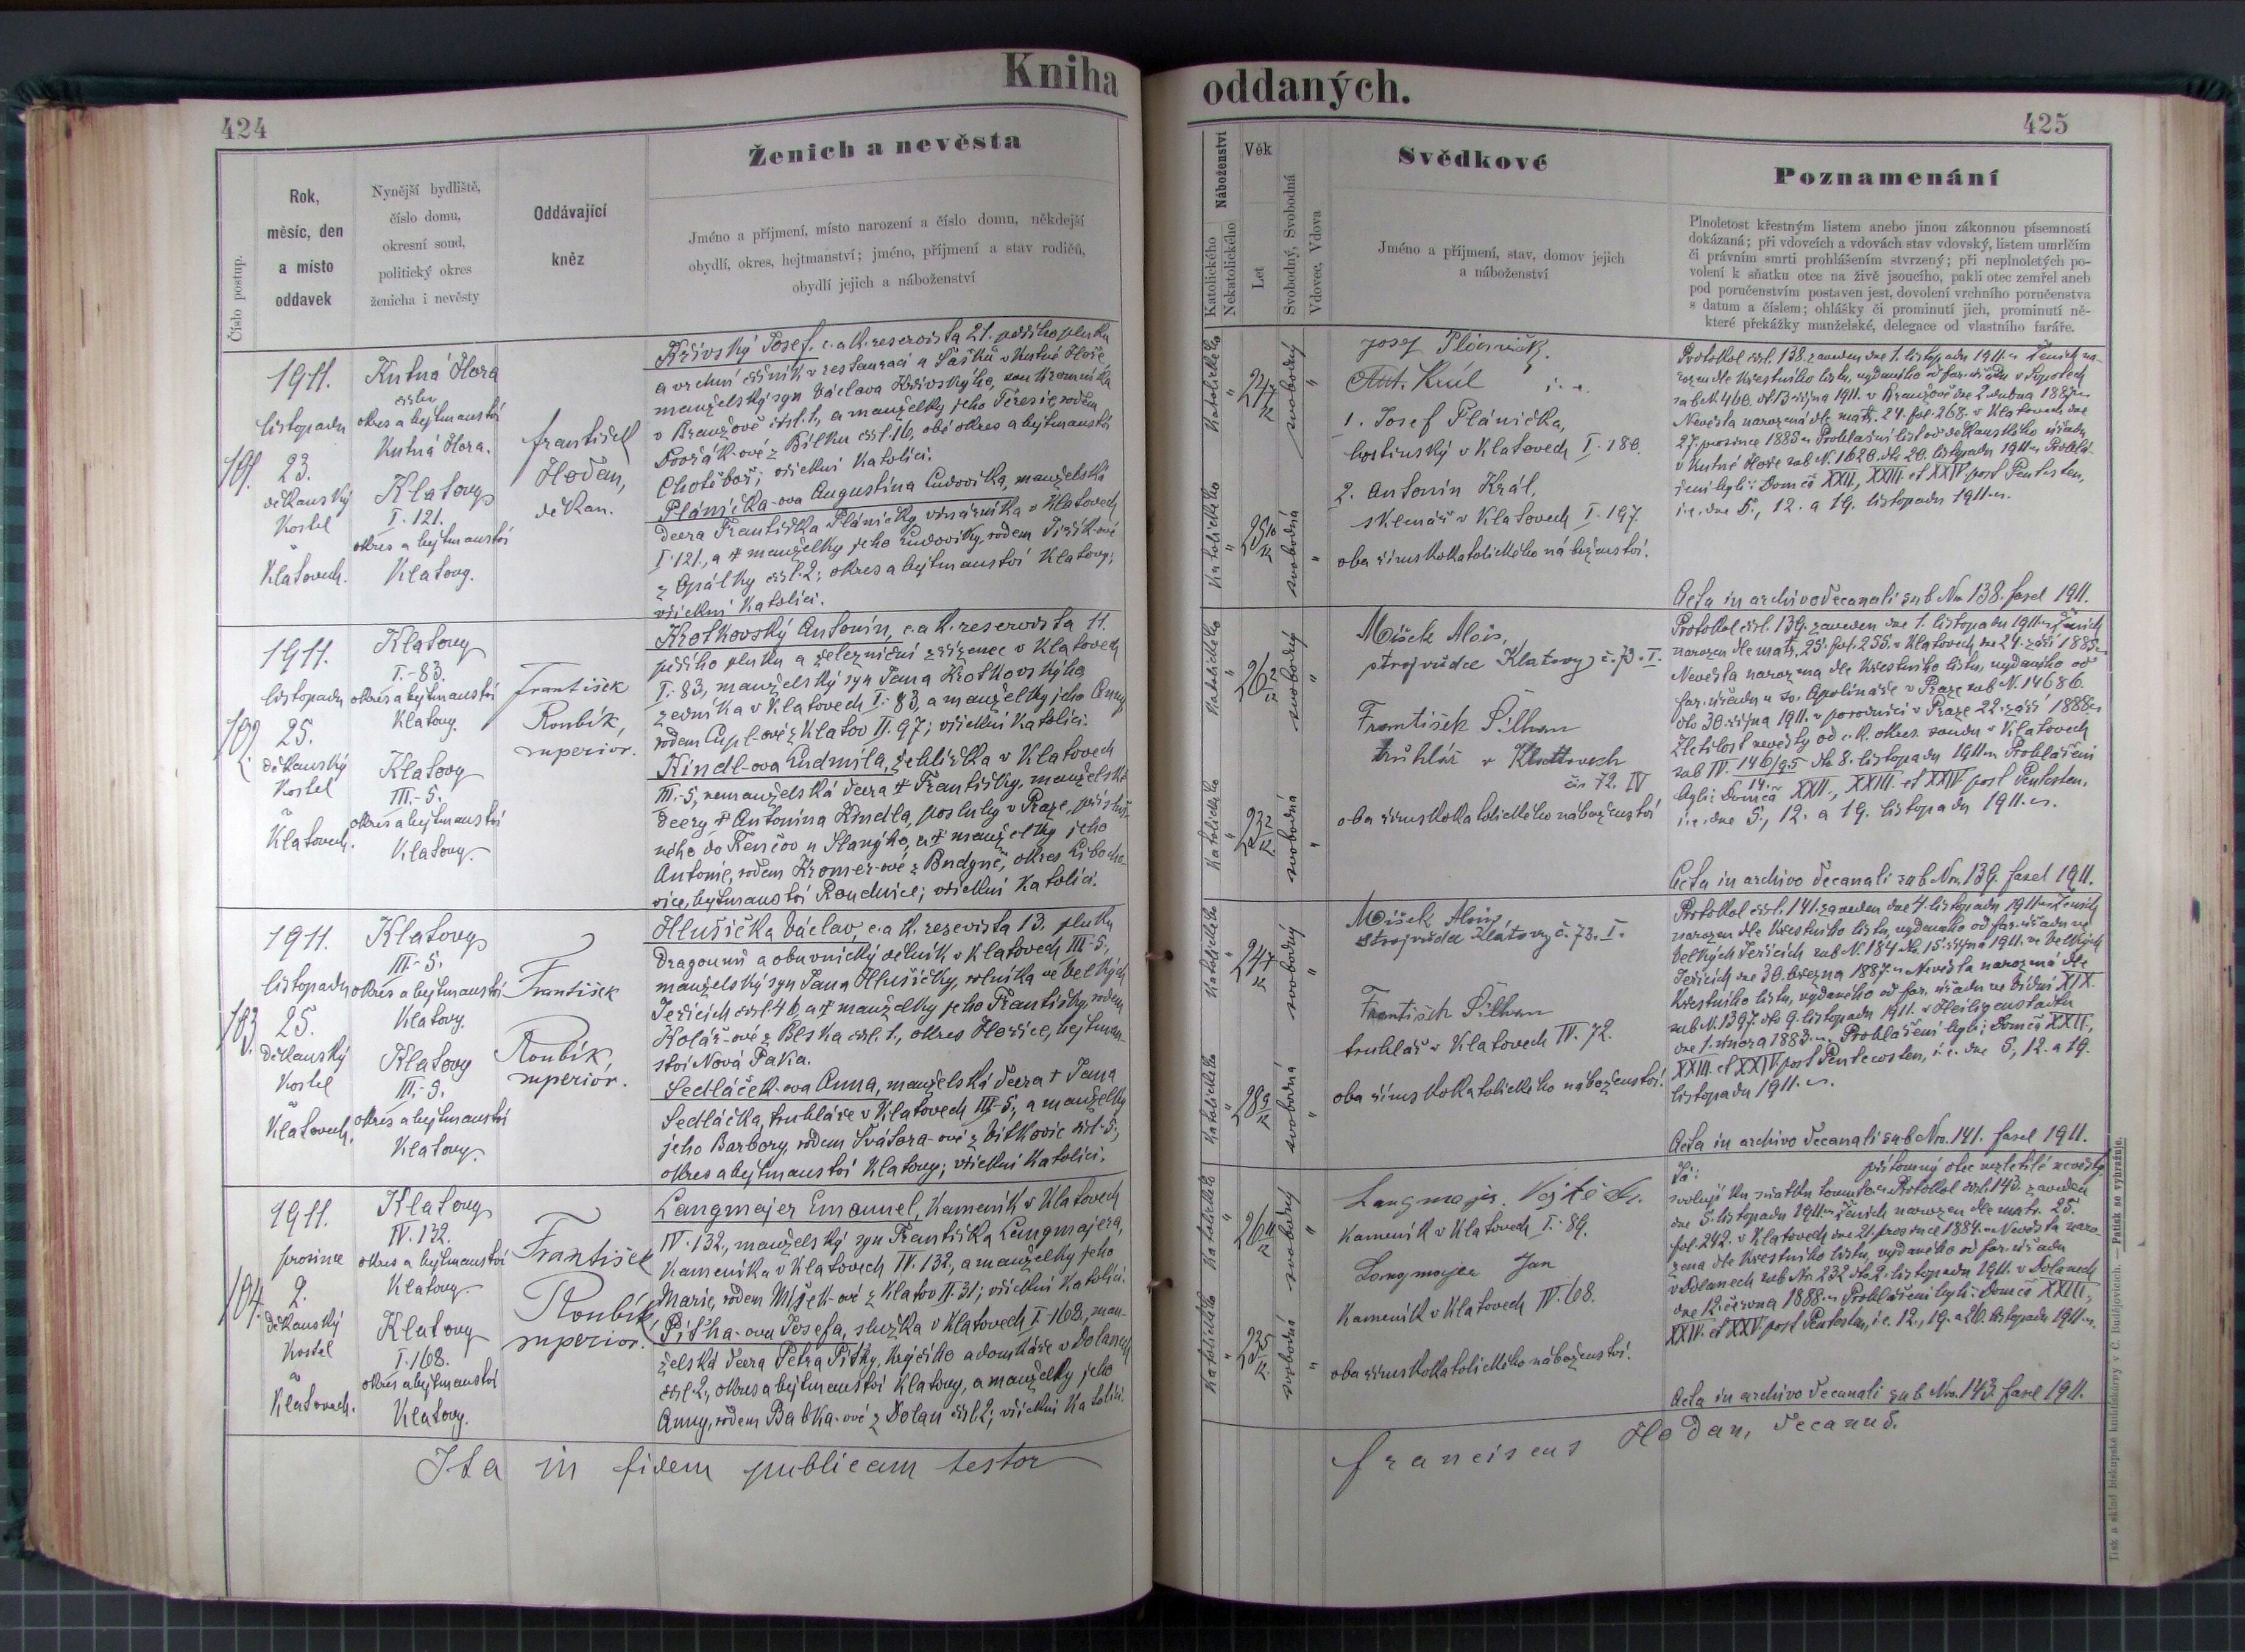 Kniha
oddaných.
424
425
Číslo postup.
Rok,
měsíc, den
a místo
oddavek
Nynější bydliště,
číslo domu,
okresní soud,
politický okres
ženicha i nevěsty
Oddávající
kněz
Ženich a nevěsta
Jméno a příjmení, místo narození a číslo domu, někdejší
obydlí, okres, hejtmanství; jméno, příjmení a stav rodičů,
obydlí jejich a náboženství
Náboženství
Katolického
Nekatolického
Věk
Let
Svobodný, Svobodná
Vdovec, Vdova
Svědkové
Jméno a příjmení, stav, domov jejich
a náboženství
Poznamenání
Plnoletost křestným listem anebo jinou zákonnou písemností
dokázaná; při vdovcích a vdovách stav vdovský, listem umrlčím
či právním smrti prohlášením stvrzený; při neplnoletých po-
volení k sňatku otce na živě jsoucího, pakli otec zemřel aneb
pod poručenstvím postaven jest, dovolení vrchního poručenstva
s datum a číslem; ohlášky či prominutí jich, prominutí ně-
které překážky manželské, delegace od vlastního faráře.
191.
1911.
listopadu
23.
děkanský
kostel
v
Klatovech.
Kutná Hora
okres a hejtmanství
Kutná Hora.
Klatovy
I. 121.
okres a hejtmanství
Klatovy.
František
Hodan,
děkan.
Křivský Josef, c. a k. reservista 21. pěšího pluku
a vrchní číšník v restauraci u Šašků v Kutné Hoře,
manželský syn Václava Křivského,
v Branžově čísl. 1, a manželky jeho Teresie, rodem
Dvořák-ové z Bílku čísl. 16, obé okres a hejtmanství
Chotěboř; všichni katolíci.
Plánička-ova Augustina Ludovika, manželská
dcera Františka Pláničky, v Klatovech
I. 121., a † manželky jeho Ludoviky, rodem
z Opálky čísl. 2; okres a hejtmanství Klatovy;
všichni katolíci.
Katolického
"
24 7/12
svobodný
"
Katolického
"
25 10/12
svobodná
"
Josef Plánička.
Ant. Král
1. Josef Plánička,
hostinský v Klatovech I. 180.
2. Antonín Král,
sklenář v Klatovech I. 197.
oba římskokatolického náboženství.
Protokol čísl. 138. zaveden dne 1. listopadu 1911. Ženich na-
rozen dle křestního listu, vydaného od far. úřadu v
sub N. 460. dto 13 října 1911. v Branžově dne 2. dubna 1887.
Nevěsta narozená dle matr. 24. fol. 268. v Klatovech dne
27. prosince 1885. Prohlašní list od děkanského úřadu
v Kutné Hoře sub N. 1620. dto 20. listopadu 1911. Prohlá-
šeni byli: Domca XXII, XXIII. et XXIV post Pentecsten,
i. e. dne 5., 12. a 19. listopadu 1911.
Acta in archivo decanali sub Nro 138. fascl 1911.
192.
1911.
listopadu
25.
děkanský
kostel
v
Klatovech.
Klatovy
I.-83.
okres a hejtmanství
Klatovy.
Klatovy
III.-5.
okres a hejtmanství
Klatovy.
František
Roubík,
superior.
Krotkovský Antonín, c. a k. reservista 11.
pěšího pluku a železniční zřízenec v Klatovech
I.-83, manželský syn Jana Krotkovského,
zedníka v Klatovech I.-83, a manželky jeho Anny,
rodem Cupl-ové z Klatov II. 97; všichni katolíci.
Kindl-ova Ludmila, žehlířka v Klatovech
III.-5, nemanželská dcera † Františky, manželské
dcery † Antonína Kindla, posluhy v Praze, přísluš-
ného do Řenčov u Slaného, a † manželky jeho
Antonie, rodem Kromer-ové z Budyně, okres Libocho-
vice, hejtmanství Roudnice; všichni katolíci.
Katolického
"
26 2/12
svobodný
"
Katolického
"
23 2/12
svobodná
"
Míšek Alois,
strojvůdce Klatovy č. 73. I.
František Šilhan
truhlář v Klattovech
čís 72. IV
oba římskokatolického náboženství
Protokol čísl. 139. zaveden dne 1. listopadu 1911. Ženich
narozen dle matr. 25. fol. 255. v Klatovech dne 24. září 1885.
Nevěsta narozena dle křestního listu, vydaného od
far. úřadu u sv. Apolináře v Praze sub N. 14686.
dto 30. října 1911. v porodnici v Praze 22. září 1888.
Zletilost nevěsty od c. k. okres. soudu v Klatovech
sub IV. 146/95 14. dto 8. listopadu 1911. Prohlášeni
byli: Domca XXII., XXIII. et XXIV post Pentcsten,
i. e. dne 5., 12. a 19. listopadu 1911.
Acta in archivo decanali sub Nro. 139. fascl 1911.
193.
1911.
listopadu
25.
děkanský
kostel
v
Klatovech.
Klatovy
III.-5.
okres a hejtmanství
Klatovy.
Klatovy
III.-5.
okres a hejtmanství
Klatovy.
František
Roubík,
superior.
Hlušička Václav, c. a k. resevista 13. pluku
dragounů a obuvnický dělník v Klatovech III.-5,
manželský syn Jana Hlušičky, rolníka ve Velkých
Jeřicích čísl. 46, a † manželky jeho Františky, rodem
Kolář-ové z Bělska čísl. 1., okres Hořice, hejtman-
ství Nová Paka.
Sedláček-ova Anna, manželská dcera † Jana
Sedláčka, truhláře v Klatovech III.-5, a manželky
jeho Barbory, rodem Svátora-ové z Vítkovic čísl. 5;
okres a hejtmanství Klatovy; všichni katolíci.
Katolického
"
24 7/12
svobodný
"
Katolického
"
28 9/12
svobodná
"
Míšek Alois,
strojvůdce Klátovy č. 73. I.
František Šilhan
truhlář v Klatovech IV. 72.
oba římskokatolického náboženství.
Protokol čísl. 141. zaveden dne 4. listopadu 1911. Ženich
narozen dle křestního listu, vydaného od far. úřadu ve
Velkých Jeřicích sub N. 184 dto. 15. října 1911. ve Velkých
Jeřicích dne 30. března 1887. Nevěsta narozená dle
křestního listu, vydaného od far. úřadu ve Vídni XIX.
sub N. 1397. dto 9. listopadu 1911. v Heiligenstadtu
dne 1. února 1883. Prohlášeni byli: Domca XXII.,
XXIII. et XXIV post Pentecosten, i. e. dne 5, 12. a 19.
listopadu 1911.
Acta in archivo decanali sub Nro. 141. fascl 1911.
194.
1911.
prosince
2.
děkanský
kostel
v
Klatovech.
Klatovy
IV. 132.
okres a hejtmanství
Klatovy.
Klatovy
I. 168.
okres a hejtmanství
Klatovy.
František
Roubík,
superior.
Langmajer Emanuel, kameník v Klatovech
IV. 132., manželský syn Františka Langmajera,
kameníka v Klatovech IV. 132, a manželky jeho
Marie, rodem z Klatov II. 31; všichni katolíci.
Pitha-ova Josefa, služka v Klatovech I. 168., man-
želská dcera Petra Pithy, krejčího a domkáře v Dolanech
čísl. 2., okres a hejtmanství Klatovy, a manželky jeho
Anny, rodem Babka-ové z Dolan čísl. 2; všichni katolíci.
Katolického
"
26 11/12
svobodný
"
Katolického
"
23 5/12
svobodná
"
Langmajer Vojtěch.
kameník v Klatovech I. 89.
Langmajer Jan
kameník v Klatovech IV. 68.
oba římskokatolického náboženství.
Já: přítomný otec nezletilé nevěsty
svoluji ku sňatku tomuto. Protokol čísl. 143. zaveden
dne 5. listopadu 1911. Ženich narozen dle matr. 25.
fol. 242. v Klatovech dne 21. prosince 1884. Nevěsta naro-
zena dle křestního listu, vydaného od far. úřadu
v Dolanech sub Nr. 232 dto 2. listopadu 1911. v Dolanech
dne 12. června 1888. Prohlášeni byli: Domca XXIII.,
XXIV. et XXV post Pentcsten, i. e. 12., 19. a 26. listopadu 1911.
Acta in archivo decanali sub Nro. 143. fascl 1911.
Ita in fidem publicam testor
Franciscus Hodan, decanus.
Tisk a sklad biskupské knihtiskárny v Č. Budějovicích. — Patisk se vyhražuje.